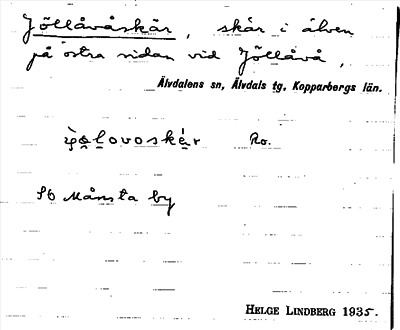 Jöllåvåskär, skär i älven
på östra sidan vid Jöllåvå,
Älvdalens sn, Älvdals tg, Kopparbergs län.
Ro.
So Månsta by
HELGE LINDBERG 1935.